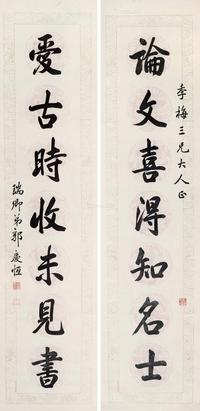 季梅三兄大人正
論文喜得知名士
愛古時收未見書
瑞卿弟郭慶恆